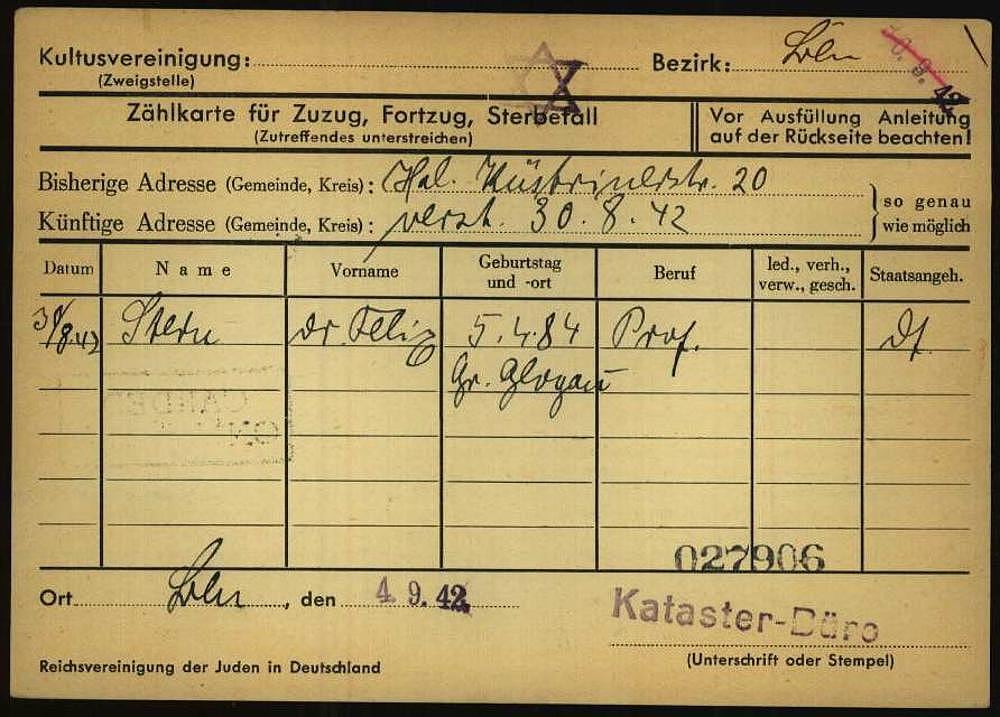 Kultusvereinigung: Bezirk: Bln 10. 9. 42
(Zweigstelle)
Zählkarte für Zuzug, Fortzug, Sterbefall
(Zutreffendes unterstreichen)
Vor Ausfüllung Anleitung
auf der Rückseite beachten!
Bisherige Adresse (Gemeinde, Kreis): Hal. Küstrinerstr. 20
Künftige Adresse (Gemeinde, Kreis): verst. 30. 8. 42
so genau
wie möglich
Datum Name Vorname Geburtstag und -ort Beruf led., verh., verw., gesch. Staatsangeh.
31/8.42 Stern Dr. Felix 5.4.84 Prof. Dt.
Gr. Glogau
027906
Ort Bln, den 4. 9. 42
Kataster-Büro
(Unterschrift oder Stempel)
Reichsvereinigung der Juden in Deutschland